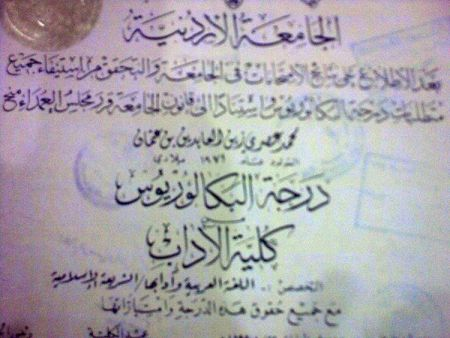 الجامعة الأردنية
بعد الاطلاع على نتائج الامتحانات في الجامعة والتحقق من استيفاء جميع
متطلبات درجة البكالوريوس واستنادا إلى قانون الجامعة قرر مجلس العمداء منح
محمد عصري زين العابدين بن عثمان
المولود عام ١٩٧٦ ميلادي
درجة البكالوريوس
من
كلية الآداب
التخصص :- اللغة العربية وآدابها/ الشريعة الإسلامية
مع جميع حقوق هذه الدرجة وامتيازاتها
عميد الكلية